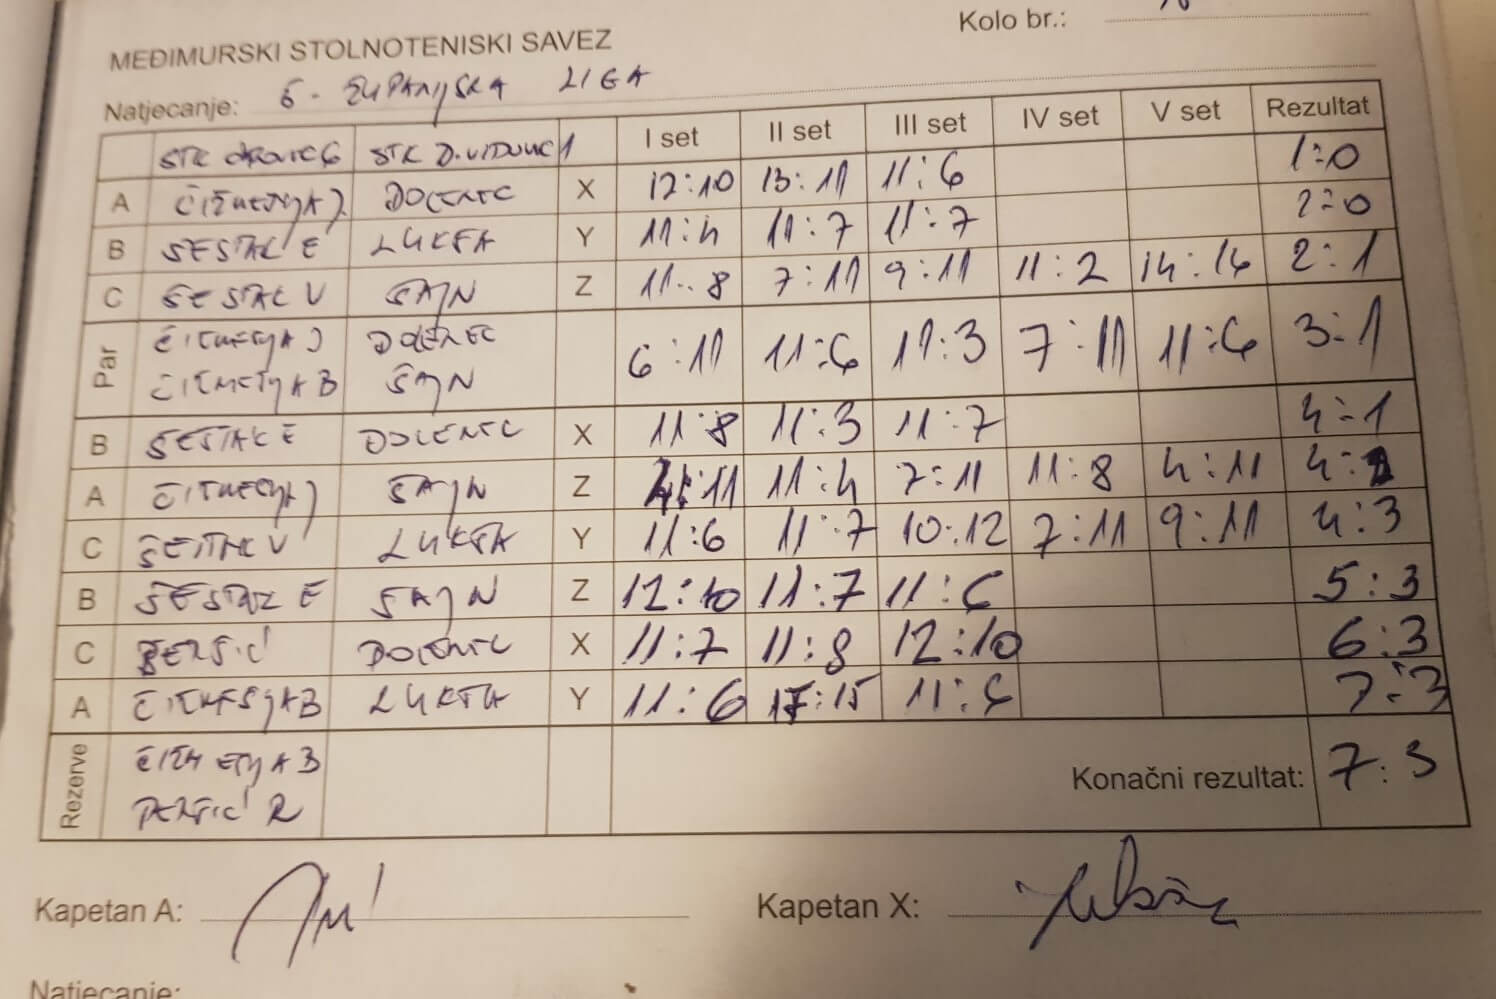 Kolo br.:
MEĐIMURSKI STOLNOTENISKI SAVEZ
Natjecanje: 5. ŽUPANIJSKA LIGA
I set II set III set IV set V set Rezultat
STK STK D. VIDOVEC 1
A DOLENEC X 12:10 13:11 11:6 1:0
B ŠESTAK E LUKŠA Y 11:4 11:7 11:7 2:0
C ŠESTAK V ŠAJN Z 11:8 7:11 9:11 11:2 14:16 2:1
Par ČIŽMEŠIJA J DOLENEC 6:11 11:6 11:3 7:11 11:6 3:1
ČIŽMEŠIJA B ŠAJN
B ŠESTAK E DOLENEC X 11:8 11:3 11:7 4:1
A ČIŽMEŠIJA J ŠAJN Z 4:11 11:4 7:11 11:8 4:11 4:2
C ŠESTAK V LUKŠA Y 11:6 11:7 10:12 7:11 9:11 4:3
B ŠESTAK E ŠAJN Z 12:10 11:7 11:6 5:3
C PERŠIĆ DOLENEC X 11:7 11:8 12:10 6:3
A ČIŽMEŠIJA B LUKŠA Y 11:6 17:15 11:6 7:3
Rezerve ČIŽMEŠIJA B
PERŠIĆ R
Konačni rezultat: 7:3
Kapetan A: Kapetan X:
Natjecanje: